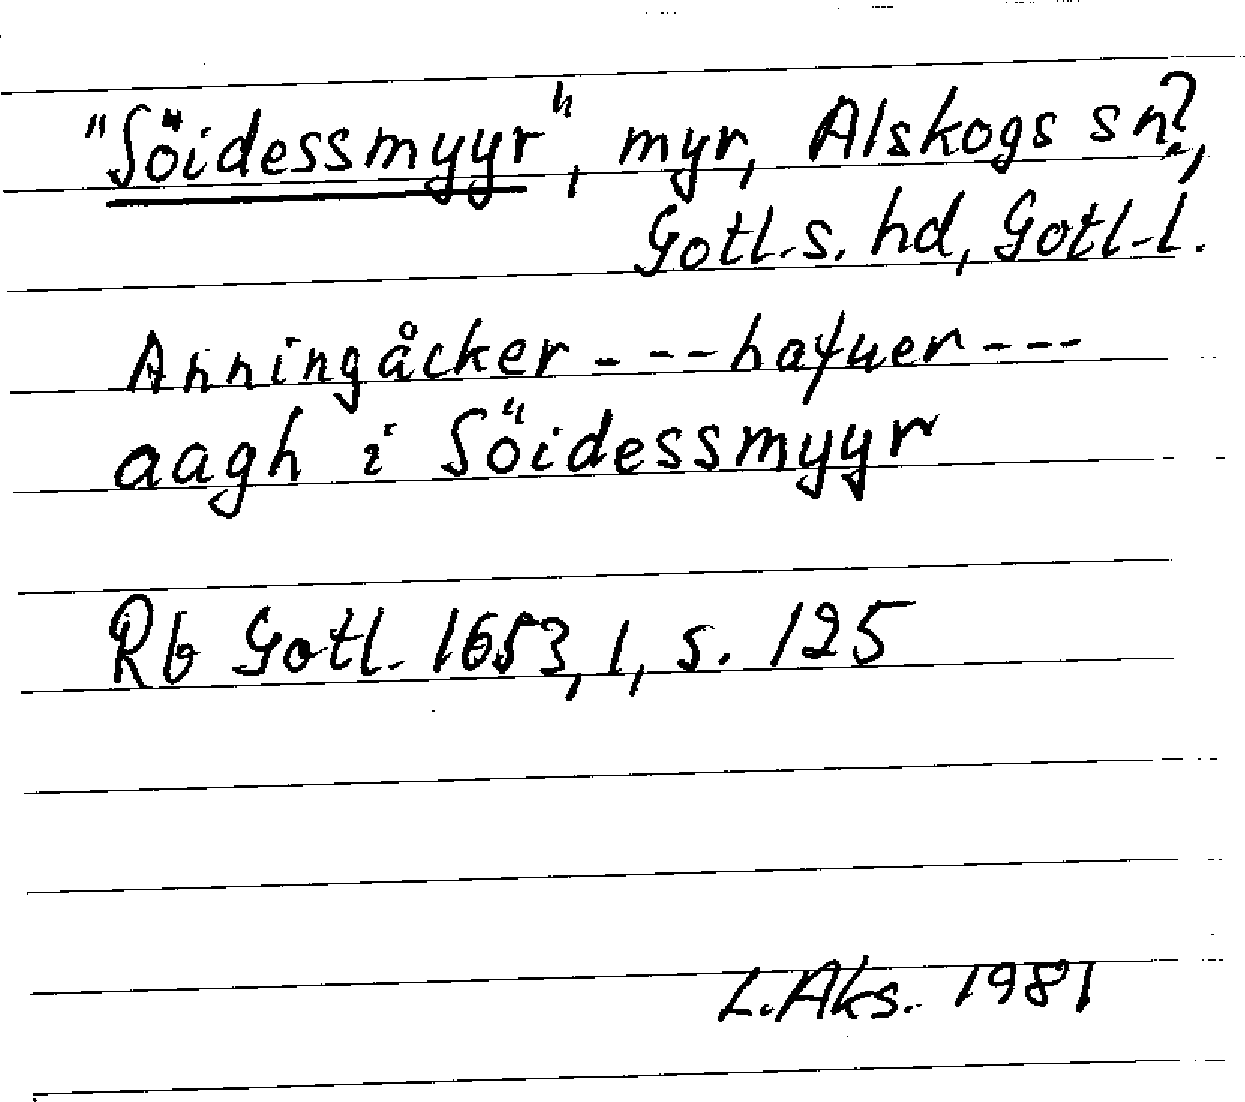 "Söidessmyyr", myr, Alskogs sn?,
Gotl. s. hd, Gotl. l.
Anningåcker - - - hafuer - - -
aagh i Söidessmyyr
Rb Gotl. 1653, 1, s. 125
L. Aks. 1981